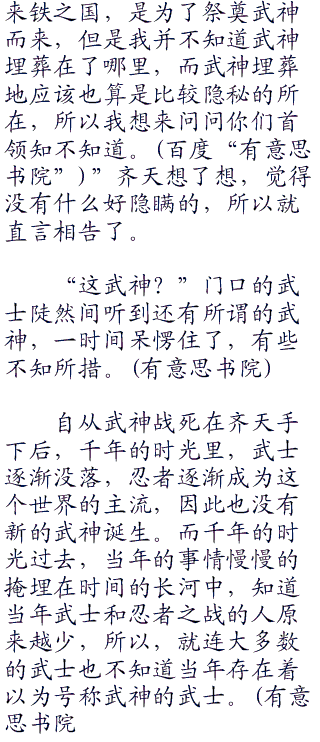 来铁之国，是为了祭奠武神
而来，但是我并不知道武神
埋葬在了哪里，而武神埋葬
地应该也算是比较隐秘的所
在，所以我想来问问你们首
领知不知道。(百度“有意思
书院”)”齐天想了想，觉得
没有什么好隐瞒的，所以就
直言相告了。
“这武神？”门口的武
士陡然间听到还有所谓的武
神，一时间呆愣住了，有些
不知所措。(有意思书院)
自从武神战死在齐天手
下后，千年的时光里，武士
逐渐没落，忍者逐渐成为这
个世界的主流，因此也没有
新的武神诞生。而千年的时
光过去，当年的事情慢慢的
掩埋在时间的长河中，知道
当年武士和忍者之战的人原
来越少，所以，就连大多数
的武士也不知道当年存在着
以为号称武神的武士。(有意
思书院